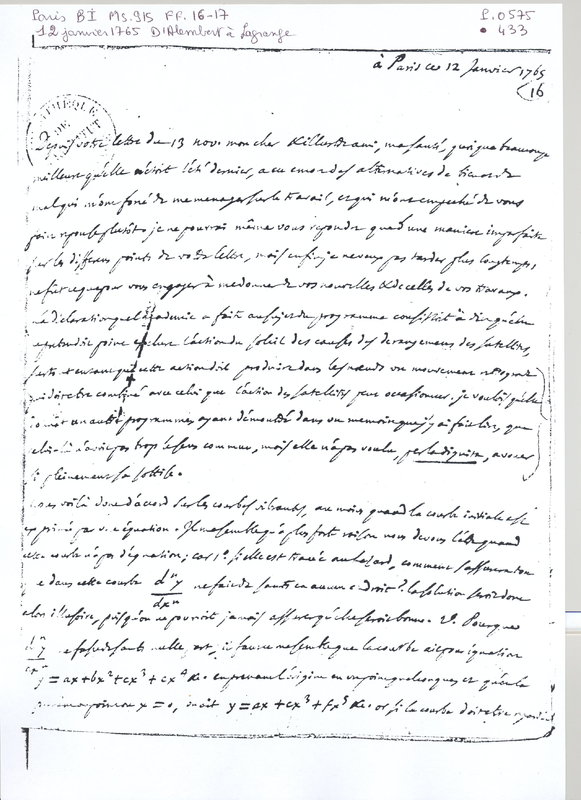 Paris BI MS.915 FF. 16-17
12 janvier 1765 D'Alembert à Lagrange
P.0575
• 433
à Paris ce 12 Janvier 1765
16
Depuis votre lettre du 13 nov. mon cher & illustre ami, ma santé, quoique beaucoup
meilleure qu'elle n'étoit l'été dernier, a eu encore des alternatives de bien & de
mal qui m'ont forcé de me menager sur le travail, et qui m'ont empeché de vous
faire reponse plutôt. je ne pourrai même vous repondre que d'une maniere imparfaite
sur les differens points de votre lettre, mais enfin je ne veux pas tarder plus longtemps,
ne fut ce que pour vous engager à me donner de vos nouvelles & de celles de vos travaux.
declaration que l'academie a faite au sujet du programme consistoit à dire qu'elle
exclure l'action du soleil des causes des derangemens des satellites,
cette action doit produire dans les nœuds un mouvement
combiné avec celui que l'action des satellites peut occasionner. je voulois qu'elle
un autre programme, ayant démontré dans un memoire que j'y ai fait lire, que
celui là n'avoit pas trop le sens commun, mais elle n'a pas voulu, per la dignita, avouer
si pleinement sa sottise.
nous voilà donc d'accord sur les courbes vibrantes, au moins quand la courbe initiale est
exprimée par une équation. Il me semble qu'à plus forte raison nous devons l'être quand
cette courbe n'a pas d'équation; car 1° si elle est tracée au hasard, comment s'assurera t'on
que dans cette courbe dⁿy/dxⁿ ne fait de sauts en aucun endroit? la solution seroit donc
alors illusoire, puisqu'on ne pourroit jamais assurer qu'elle seroit bonne. 2°. Pour que
dⁿy/dxⁿ ne fasse de sauts nulle part, il faut ce me semble que la courbe ait pour équation
y = ax + bx² + cx³ + ex⁴ &c. en prenant l'origine en un point quelconque et qu'à
x = 0, on ait y = ax + cx³ + fx⁵ &c. or si la courbe doit être